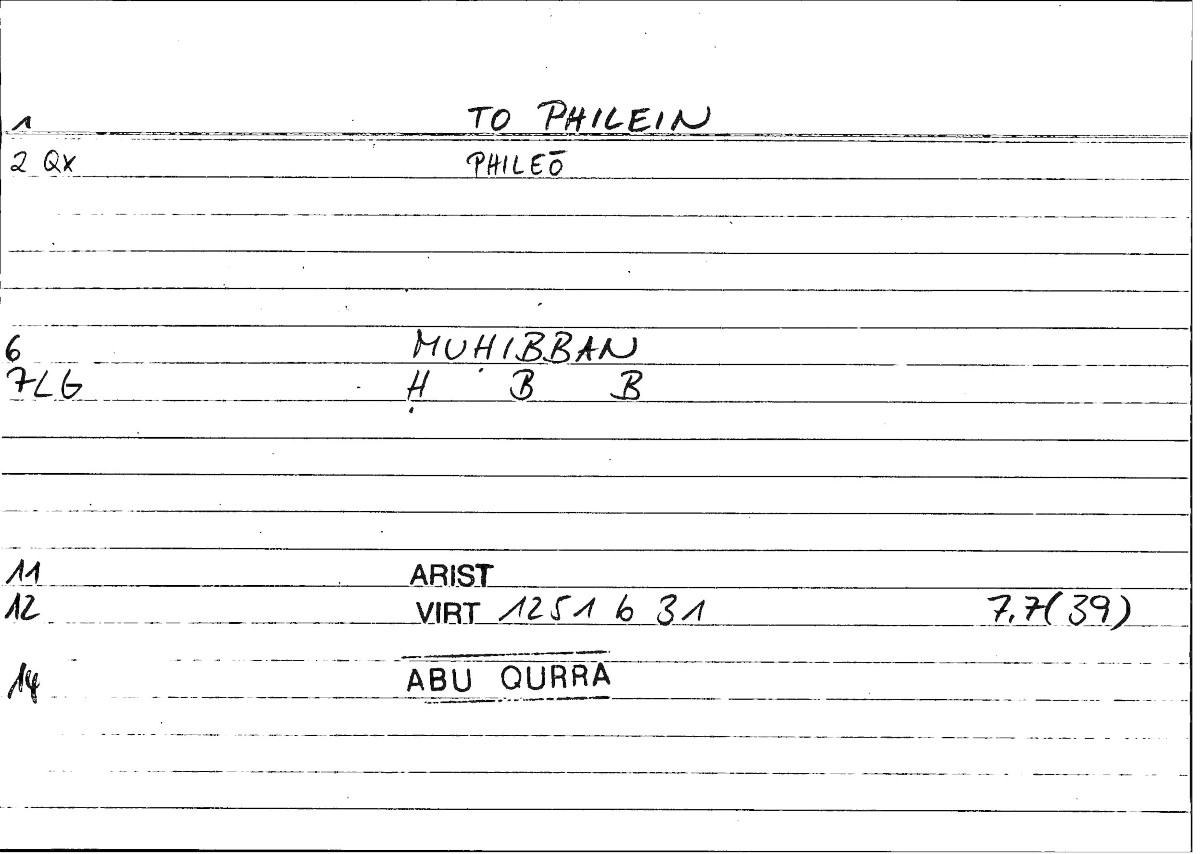 1 TO PHILEIN
2 QX PHILEŌ
6 MUḤIBBAN
7LG Ḥ B B
11 ARIST
12 VIRT 1251 b 31 7,7(39)
14 ABU QURRA